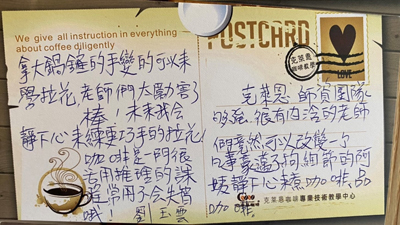 We give all instruction in everything
about coffee diligently
拿大鍋鏟的手變的可以來
學拉花,老師們太厲害了
棒!未來我會
靜下心來練更巧手的拉花!
咖啡是一門很
活用推理的課
常用了會失智
哦!劉玉雲
POSTCARD
克萊恩
LOVE
克萊恩師資團隊
夠強.很有內涵的老師
們竟然可以改變一个
口事豪邁不拘細節的阿
婧靜下心來煮咖啡.品
咖啡.
克萊恩咖啡專業技術教學中心